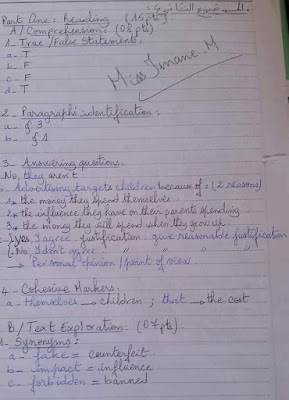 الموضوع الثاني:
Part One: Reading (15pts)
A/ Comprehension: (08pts)
1- True/False Statements:
a- T
b- F
c- F
d- T
Miss Imane. M
2- Paragraphs identification:
a- § 3
b- § 1
3- Answering questions:
No, they aren't.
b- Advertising targets children because of: (2 reasons)
1→ the money they spend themselves
2→ the influence they have on their parents spending
3→ the money they will spend when they grow up.
c- Yes, I agree - justification: give reasonable justification
No, I don't agree: " " " "
→ Personal opinion/point of view.
4- Cohesive Markers:
a- themselves → children ; that → the cost
B/ Text Exploration: (07pts)
1- Synonyms:
a- fake = counterfeit
b- impact = influence
c- forbidden = banned